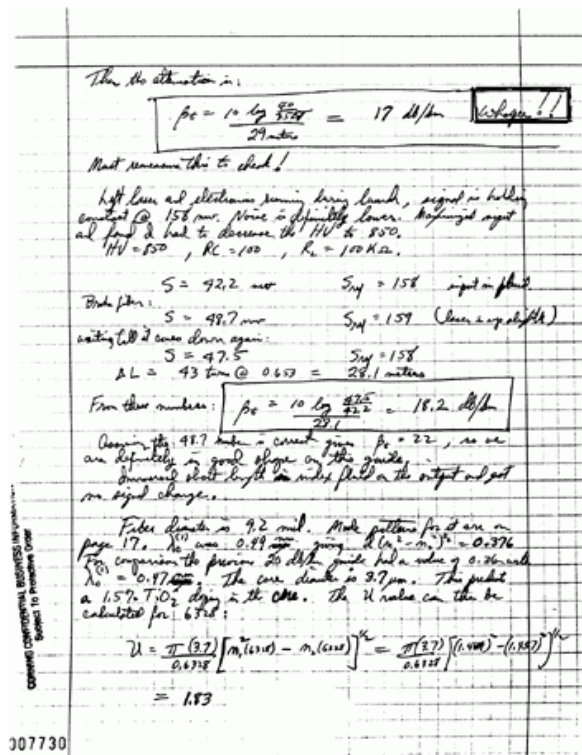 Then the attenuation is:
βt = 10 log 40/3.528 / 29 meters = 17 db/km Whopee!!
Must remeasure this to check!
Left laser and electronics running during lunch, signal is holding
constant @ 158 mv. Noise is definitely lower. Maximized input
and found I had to decrease the HV to 850.
HV = 850, RC = 100, RL = 100 KΩ.
S = 42.2 mv Sref = 158 input in fluid
Broke fiber:
S = 48.7 mv Sref = 159 (laser is up slightly)
waiting till it comes down again:
S = 47.5 Sref = 158
ΔL = 43 turns @ 0.653 = 28.1 meters
From these numbers: βt = 10 log 47.5/42.2 / 28.1 = 18.2 db/km
Assuming the 48.7 number is correct gives βt = 22, so we
are definitely in good shape on this guide.
Immersed short length in index fluid on the output and got
no signal change.
Fiber diameter is 9.2 mil. Mode patterns for it are on
page 17. λ0(1) was 0.49 giving = 0.376
For comparison the previous 20 db/km guide had a value of 0.36 with
λ0(1) = 0.47. The core diameter is 3.7 μm. This predicts
a 1.5% TiO2 doping in the core. The U value can then be
calculated for 6328:
U = π(3.7)/0.6328 [n1²(6328) − n2²(6328)]^1/2 = π(3.7)/0.6328 ^1/2
= 1.83
CORNING CONFIDENTIAL BUSINESS INFORMATION
Subject To Protective Order
007730